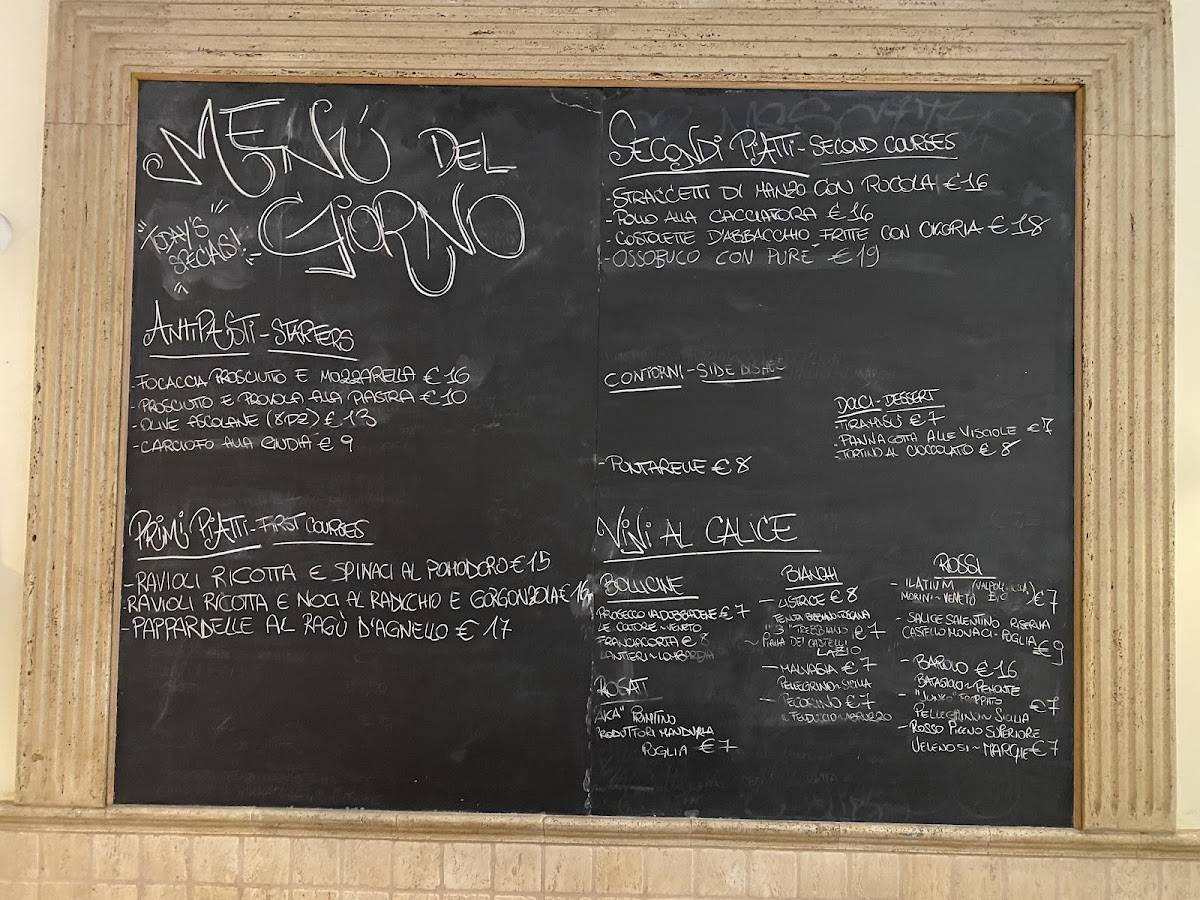 MENÙ DEL
GIORNO
"TODAY'S
SPECIALS!"
ANTIPASTI - STARTERS
- FOCACCIA PROSCIUTO E MOZZARELLA € 16
- PROSCIUTO E PROVOLA ALLA PIASTRA € 10
- OLIVE ASCOLANE (8PZ) € 13
- CARCIOFO ALLA GIUDIA € 9
PRIMI PIATTI - FIRST COURSES
- RAVIOLI RICOTTA E SPINACI AL POMODORO € 15
- RAVIOLI RICOTTA E NOCI AL RADICCHIO E GORGONZOLA € 16
- PAPPARDELLE AL RAGÙ D'AGNELLO € 17
SECONDI PIATTI - SECOND COURSES
- STRACCETTI DI MANZO CON RUCOLA € 16
- POLLO ALLA CACCIATORA € 16
- COSTOLETE D'ABBACCHIO FRITTE CON CICORIA € 18
- OSSOBUCO CON PURE € 19
CONTORNI - SIDE DISHES
- PUNTARELLE € 8
DOLCI - DESSERT
- TIRAMISÙ € 7
- PANNACOTTA ALLE VISCIOLE € 7
- TORTINO AL CIOCCOLATO € 8
VINI AL CALICE
BOLLICINE
PROSECCO VALDOBBIADENE € 7
LE COLTURE ~ VENETO
FRANCIACORTA € 8
LANTIERI ~ LOMBARDIA
ROSATI
"AKA" PRIMITIVO
PRODUTTORI MANDURIA
PUGLIA € 7
BIANCHI
- LISTRICE € 8
"3" TREBBIANO € 7
~ PIANA DEI CASTELLI
LAZIO
- MALVASIA € 7
PELLEGRINO ~ SICILIA
- PECORINO € 7
IL FEUDUCCIO ~ ABRUZZO
ROSSI
- ILATIUM (VALPOLICELLA)
MORINI ~ VENETO € 7
- SALICE SALENTINO RISERVA
CASTELLO MONACI - PUGLIA
€ 9
- BAROLO € 16
BATASIOLO ~ PIEMONTE
- "JUNKO" FRAPPATO € 7
PELLEGRINO ~ SICILIA
- ROSSO PICENO SUPERIORE
VELENOSI ~ MARCHE € 7